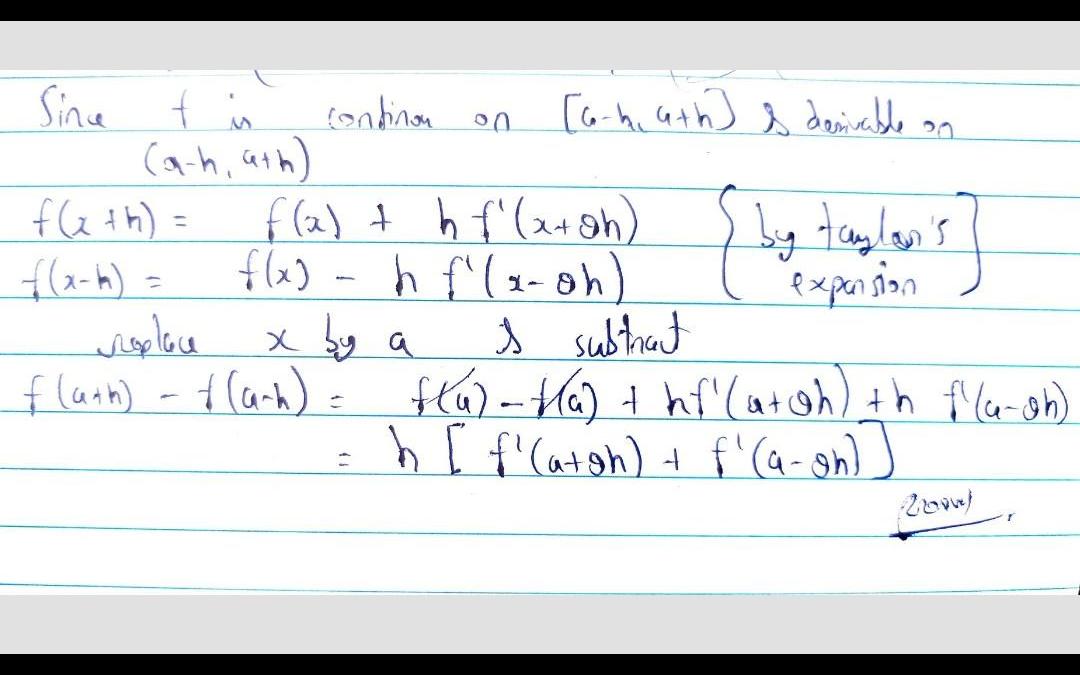 Since f is continou on [a-h, a+h] & derivable on
(a-h, a+h)
f(x+h) = f(x) + h f'(x+θh) { by taylor's
f(x-h) = f(x) - h f'(x-θh) expansion }
replace x by a & subtract
f(a+h) - f(a-h) = f(a) - f(a) + hf'(a+θh) + h f'(a-θh)
= h [ f'(a+θh) + f'(a-θh) ]